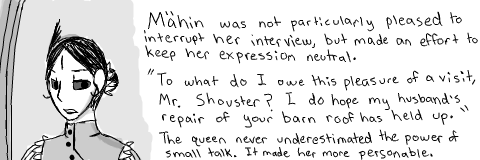 Mähin was not particularly pleased to
interrupt her interview, but made an effort to
keep her expression neutral.
"To what do I owe this pleasure of a visit,
Mr. Shouster? I do hope my husband's
repair of your barn roof has held up."
The queen never underestimated the power of
small talk. It made her more personable.